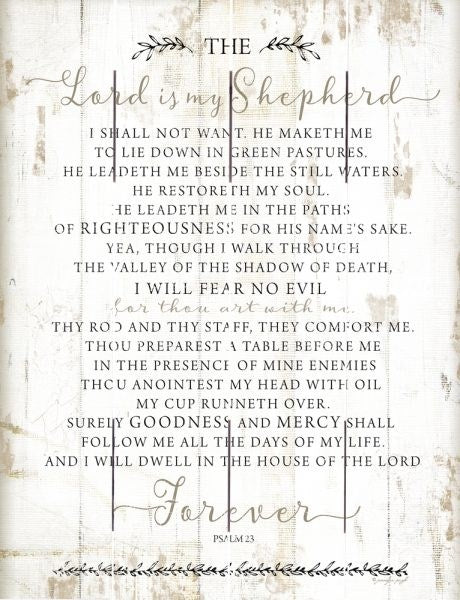 THE
Lord is my Shepherd
I SHALL NOT WANT. HE MAKETH ME
TO LIE DOWN IN GREEN PASTURES.
HE LEADETH ME BESIDE THE STILL WATERS.
HE RESTORETH MY SOUL.
HE LEADETH ME IN THE PATHS
OF RIGHTEOUSNESS FOR HIS NAME'S SAKE.
YEA, THOUGH I WALK THROUGH
THE VALLEY OF THE SHADOW OF DEATH,
I WILL FEAR NO EVIL
for thou art with me.
THY ROD AND THY STAFF, THEY COMFORT ME.
THOU PREPAREST A TABLE BEFORE ME
IN THE PRESENCE OF MINE ENEMIES
THOU ANOINTEST MY HEAD WITH OIL
MY CUP RUNNETH OVER.
SURELY GOODNESS AND MERCY SHALL
FOLLOW ME ALL THE DAYS OF MY LIFE.
AND I WILL DWELL IN THE HOUSE OF THE LORD
Forever
PSALM 23